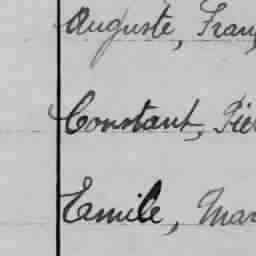 Auguste, Fran
Constant, Pie
Emile, Mar